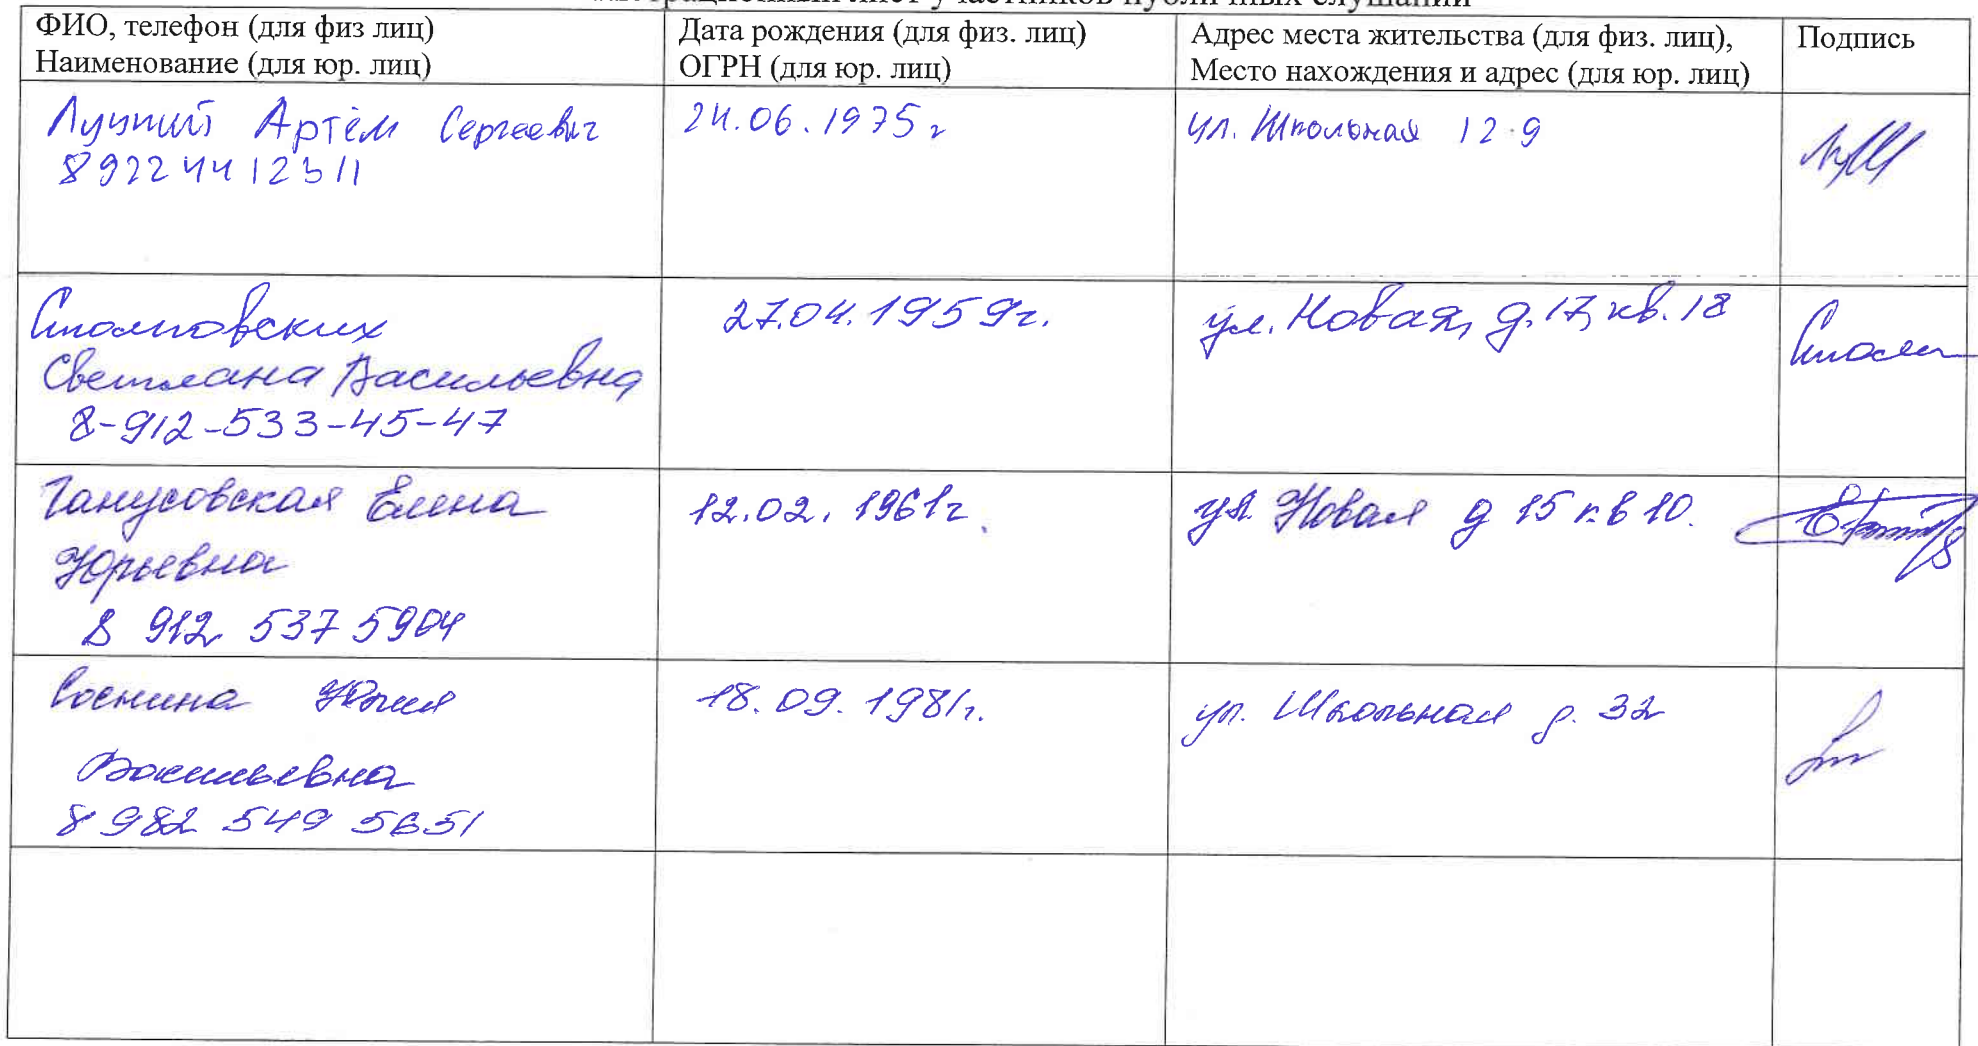 лист участников публичных слушаний
ФИО, телефон (для физ лиц)
Наименование (для юр. лиц)
Дата рождения (для физ. лиц)
ОГРН (для юр. лиц)
Адрес места жительства (для физ. лиц),
Место нахождения и адрес (для юр. лиц)
Подпись
Артём Сергеевич
89224412311
24.06.1975 г
ул. Школьная 12-9
Столповских
Светлана Васильевна
8-912-533-45-47
27.04.1959г.
ул. Новая, д.17, кв.18
Ганусовская Елена
Юрьевна
8 912 537 5904
12.02.1961г.
ул. Новая д 15 кв 10.
Соснина Юлия
Васильевна
8 982 549 5651
18.09.1981г.
ул. Школьная д. 32